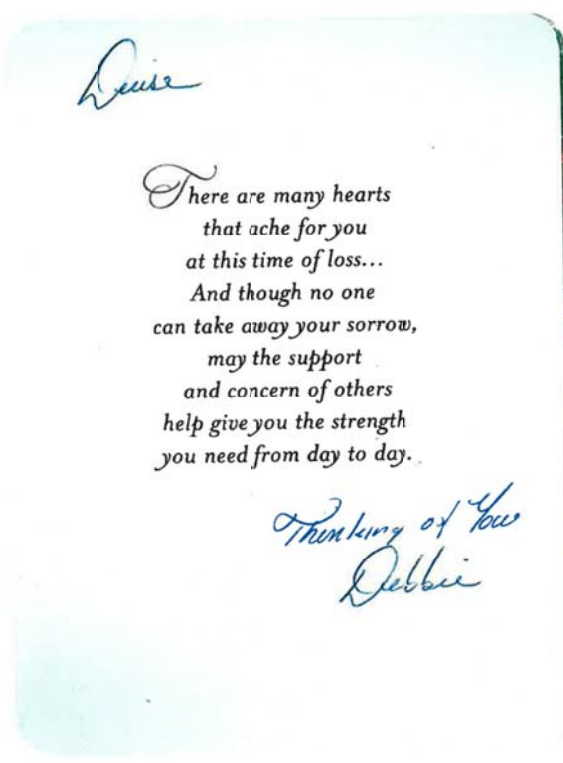 Denise
There are many hearts
that ache for you
at this time of loss...
And though no one
can take away your sorrow,
may the support
and concern of others
help give you the strength
you need from day to day.
Thinking of You
Debbie